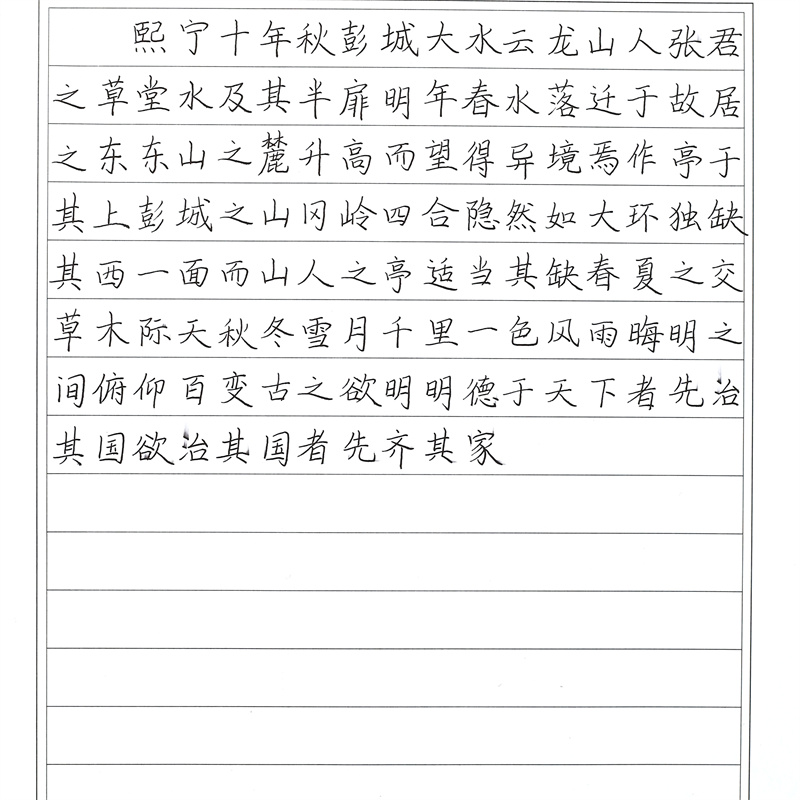 熙宁十年秋彭城大水云龙山人张君
之草堂水及其半扉明年春水落迁于故居
之东东山之麓升高而望得异境焉作亭于
其上彭城之山冈岭四合隐然如大环独缺
其西一面而山人之亭适当其缺春夏之交
草木际天秋冬雪月千里一色风雨晦明之
间俯仰百变古之欲明明德于天下者先治
其国欲治其国者先齐其家